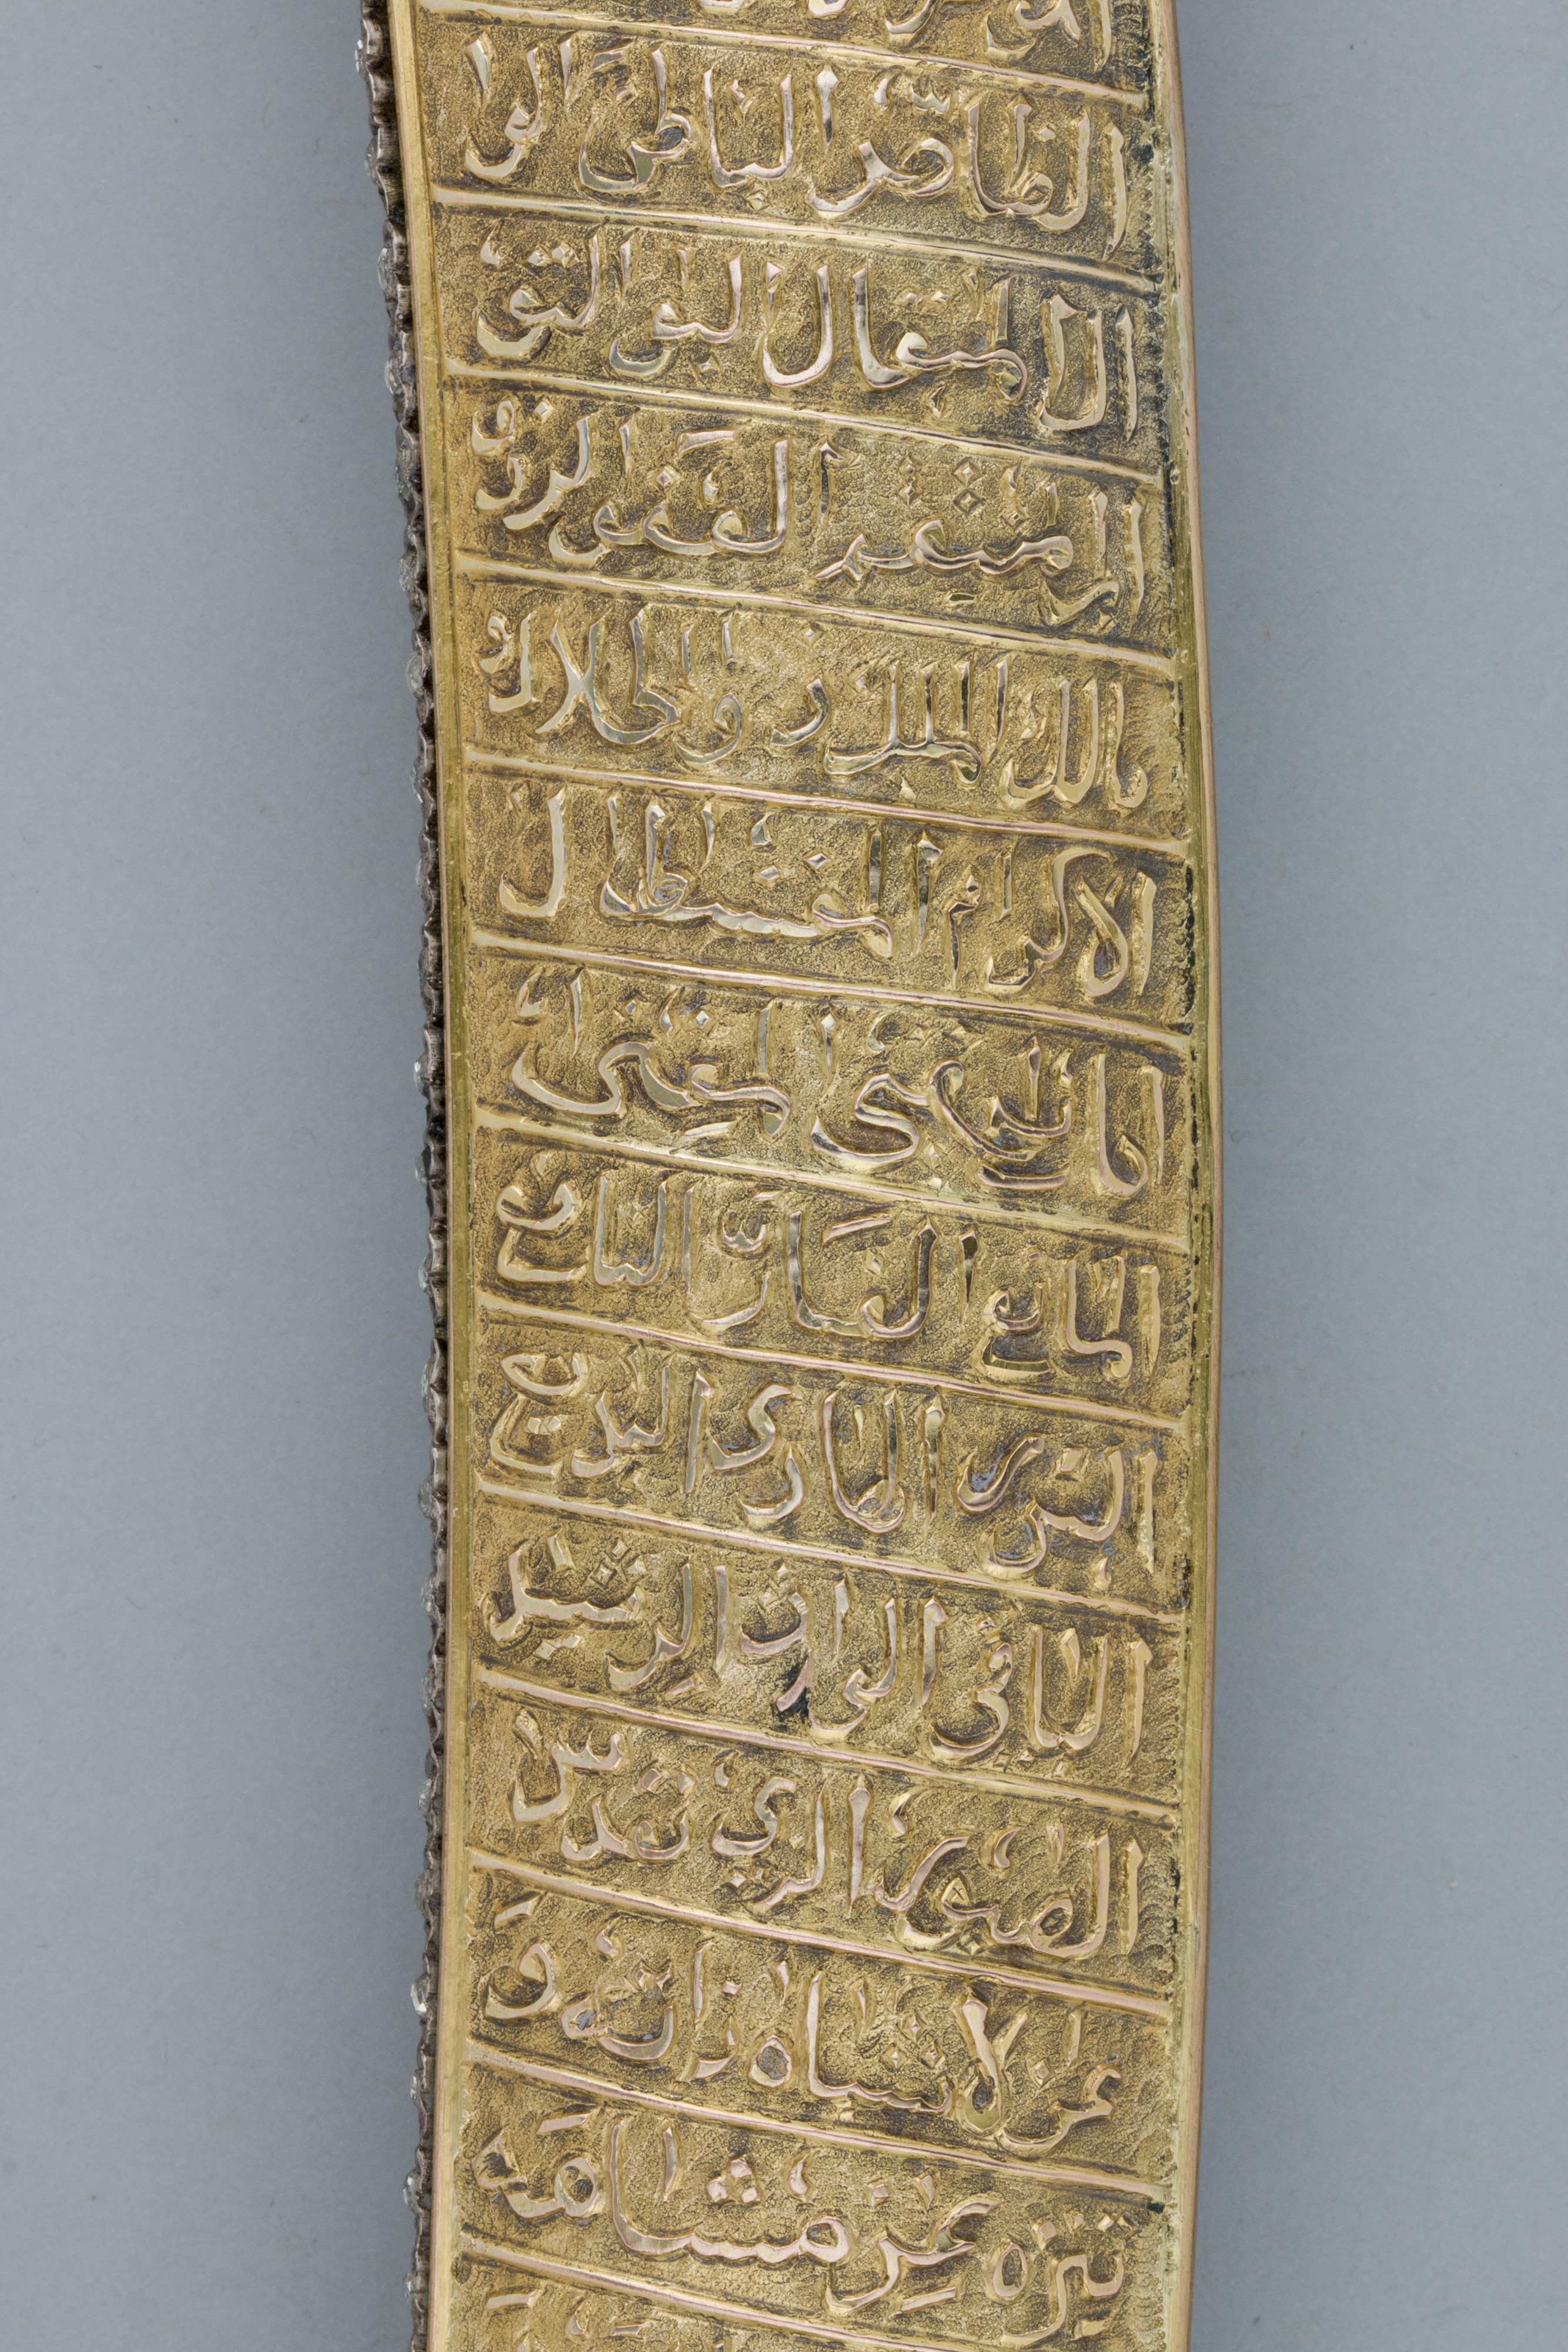 الظاهر الباطن الوا
ال المتعال البر التو
المنتقم العفو الرؤ
مالك الملك ذو الجلال
الاكرام المقسط ال
الغنى المغنى
المانع الضار النافع
النور الهادى البديع
الباقى الوارث الرشيد
الصبور الذي تقدس
عن الاشباه ذاته و
تنزه عن مشابهة